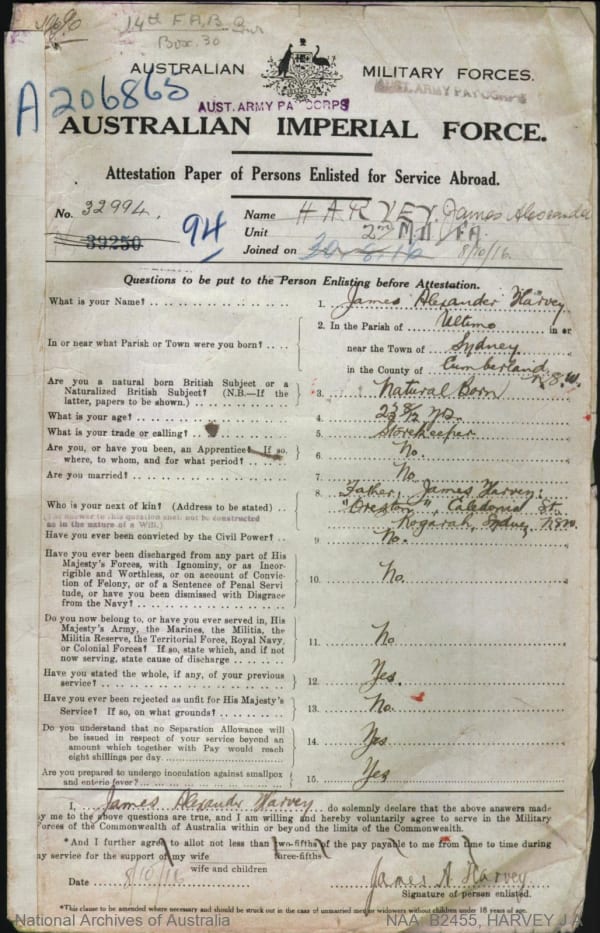 14th F.A.B.
Box 30
AUSTRALIAN MILITARY FORCES.
A206865
AUST. ARMY PAY CORPS AUST. ARMY PAY CORPS
AUSTRALIAN IMPERIAL FORCE.
Attestation Paper of Persons Enlisted for Service Abroad.
No. 32994. Name HARVEY. James Alexander
39250 94 Unit 2nd MD F.A.
Joined on 8/10/16.
Questions to be put to the Person Enlisting before Attestation.
What is your Name? 1. James Alexander Harvey
In or near what Parish or Town were you born? 2. In the Parish of Ultimo in or
near the Town of Sydney
in the County of Cumberland N.S.W.
Are you a natural born British Subject or a
Naturalized British Subject? (N.B.—If the
latter, papers to be shown.) 3. Natural Born
What is your age? 4. 23 8/12 yrs.
What is your trade or calling? 5. Storekeeper
Are you, or have you been, an Apprentice? If so,
where, to whom, and for what period? 6. No.
Are you married? 7. No.
Who is your next of kin? (Address to be stated) 8. Father, James Harvey.
(The answer to this question shall not be construed
as in the nature of a Will.)
Caledonia St.
Kogarah, Sydney NSW.
Have you ever been convicted by the Civil Power? 9. No.
Have you ever been discharged from any part of His
Majesty's Forces, with Ignominy, or as Incor-
rigible and Worthless, or on account of Convic-
tion of Felony, or of a Sentence of Penal Servi
tude, or have you been dismissed with Disgrace
from the Navy? 10. No.
Do you now belong to, or have you ever served in, His
Majesty's Army, the Marines, the Militia, the
Militia Reserve, the Territorial Force, Royal Navy,
or Colonial Forces? If so, state which, and if not
now serving, state cause of discharge 11. No
Have you stated the whole, if any, of your previous
service? 12. Yes.
Have you ever been rejected as unfit for His Majesty's
Service? If so, on what grounds? 13. No.
Do you understand that no Separation Allowance will
be issued in respect of your service beyond an
amount which together with Pay would reach
eight shillings per day 14. Yes
Are you prepared to undergo inoculation against smallpox
and enteric fever? 15. Yes
I, James Alexander Harvey do solemnly declare that the above answers made
by me to the above questions are true, and I am willing and hereby voluntarily agree to serve in the Military
Forces of the Commonwealth of Australia within or beyond the limits of the Commonwealth.
*And I further agree to allot not less than two-fifths of the pay payable to me from time to time during
three-fifths
my service for the support of my wife
wife and children
Date 8/10/16 James A Harvey
Signature of person enlisted.
*This clause to be amended where necessary and should be struck out in the case of unmarried men or widowers without children under 18 years of age.
National Archives of Australia NAA: B2455, HARVEY J A